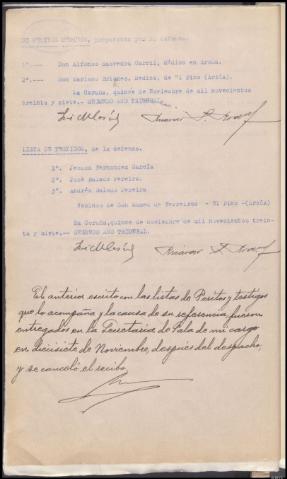 DE PERITOS MEDICOS, propuestos por la defensa.
1º.— Don Alfonso Saavedra Garcíl, Médico en Arzúa.
2º.— Don Mariano Médico, de El Pino (Arzúa).
La Coruña, quince de Noviembre de mil novecientos
treinta y siete.— SEGUNDO AÑO TRIUNFAL.—
LISTA DE TESTIGOS, de la defensa.
1º. Fernández García
2º. José Pereira
3º. Andrés Pereira
Vecinos de San de Ferreiros - El Pino -(Arzúa)
La Coruña, quince de noviembre de mil novecientos trein-
ta y siete.— SEGUNDO AÑO TRIUNFAL.
El anterior escrito con las listas de Peritos y testigos
que lo acompaña y la causa de su referencia, fueron
entregados en la Secretaría de Sala de mi cargo
en diecisiete de Noviembre, después del despacho,
y se canceló el recibo.